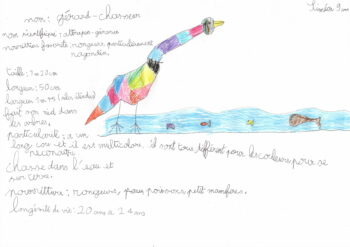 Kinder 9 ans
nom : gérard-chasseur
nom scientifique : attrape-gérarus
nourriture favorite : rongeurs, particulièrement
ragondin.
taille : 1m20cm
largeur : 50cm
largeur : 1m75 (ailes étendues)
fait son nid dans
les arbres.
particularité : a un
long cou et il est multicolore. il sont tous différent pour les couleurs pour se
reconnaître
chasse dans l'eau et
sur terre.
nourriture : rongeurs, gros poissons, petit mamifères.
longévité de vie : 20 ans à 24 ans